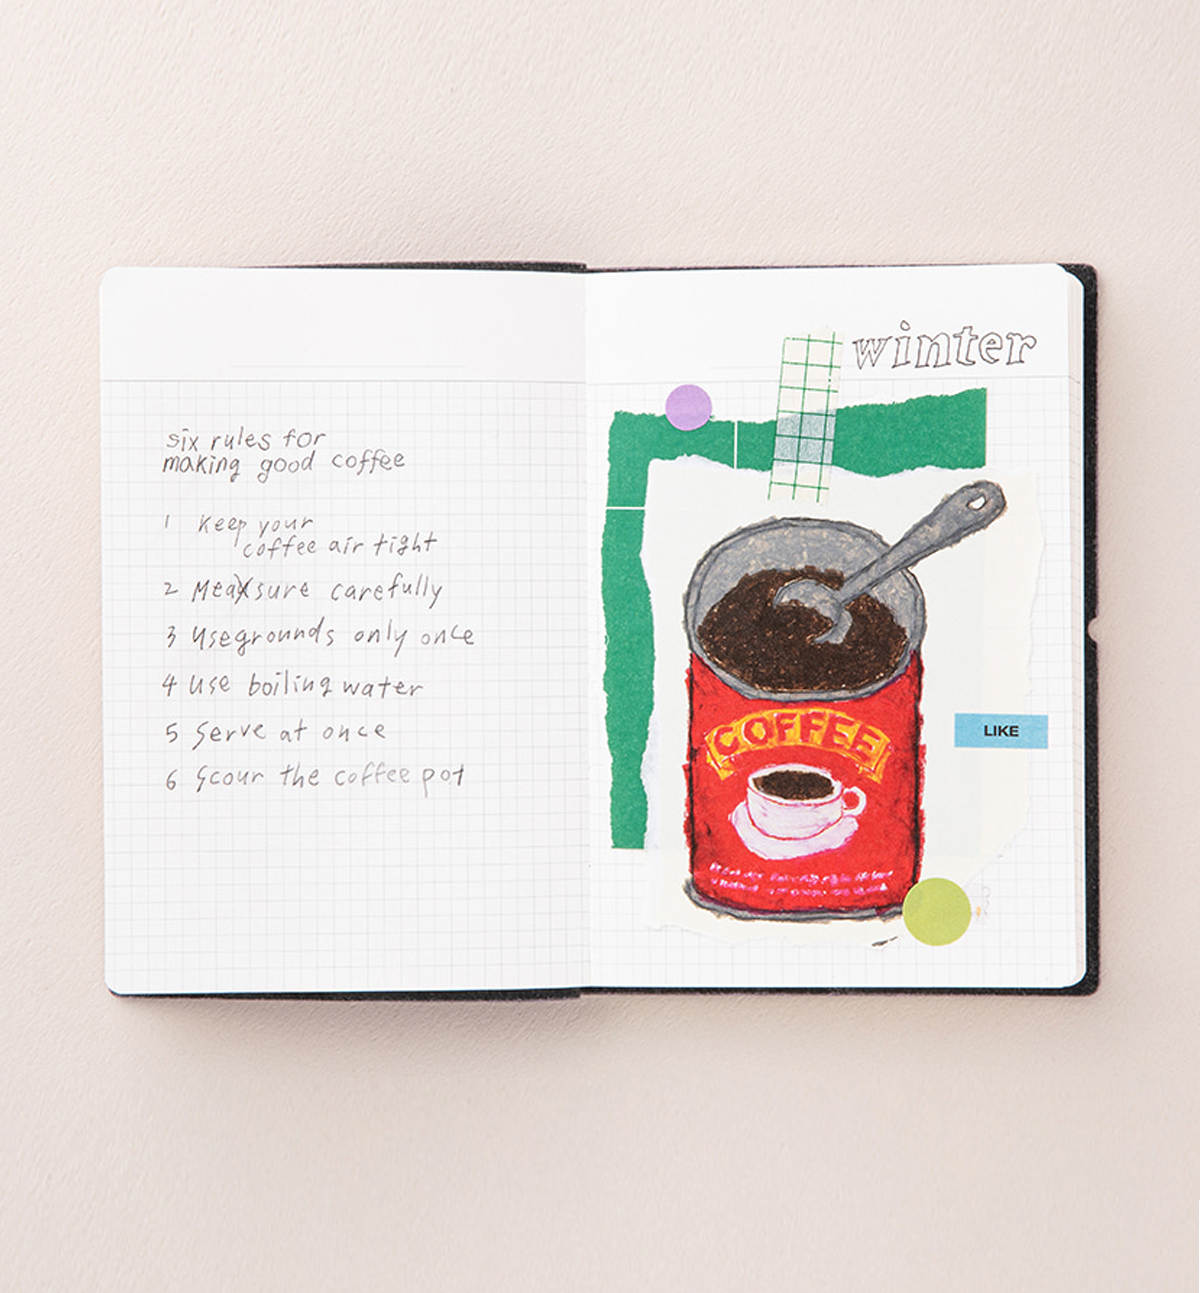 six rules for
making good coffee
1 Keep your
coffee air tight
2 Measure carefully
3 Use grounds only once
4 Use boiling water
5 Serve at once
6 Scour the coffee pot
winter
COFFEE
LIKE